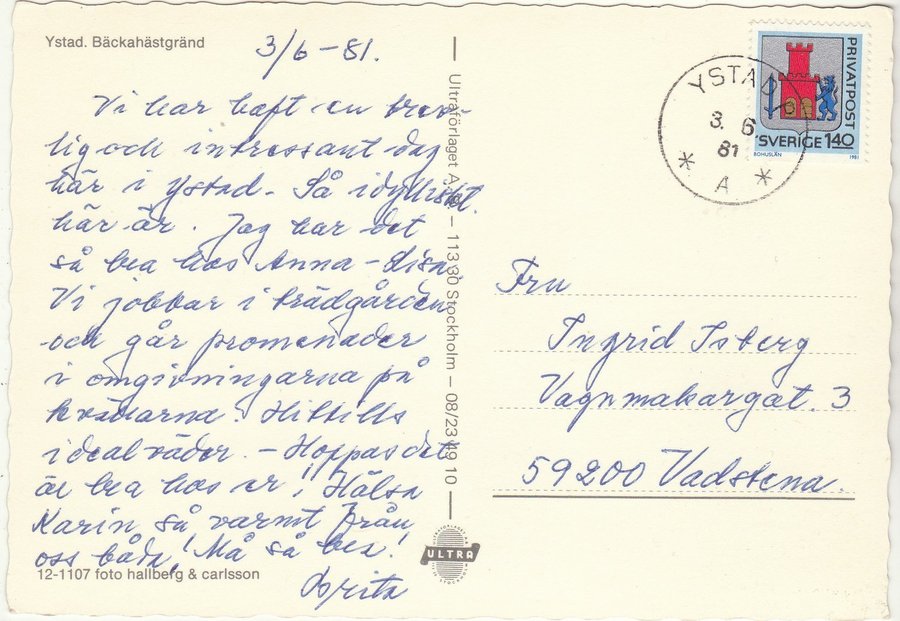 Ystad. Bäckahästgränd
3/6 - 81.
Vi har haft en trev-
lig och intressant dag
här i Ystad. Så idylliskt
här är. Jag har det
så bra hos Anna-Lisa.
Vi jobbar i trädgården
och går promenader
i omgivningarna på
kvällarna. Hittills
idealväder. - Hoppas det
är bra hos er! Hälsa
Karin så varmt från
oss båda! Må så bra!
Brita
12-1107 foto hallberg & carlsson
Ultraförlaget A.B. – 113 30 Stockholm – 08/23 49 10
ULTRA
YSTAD
3. 6
81
* A *
PRIVATPOST
SVERIGE 140
BOHUSLÄN 1981
Fru
Ingrid Isberg
Vagnmakargat. 3
59200 Vadstena.